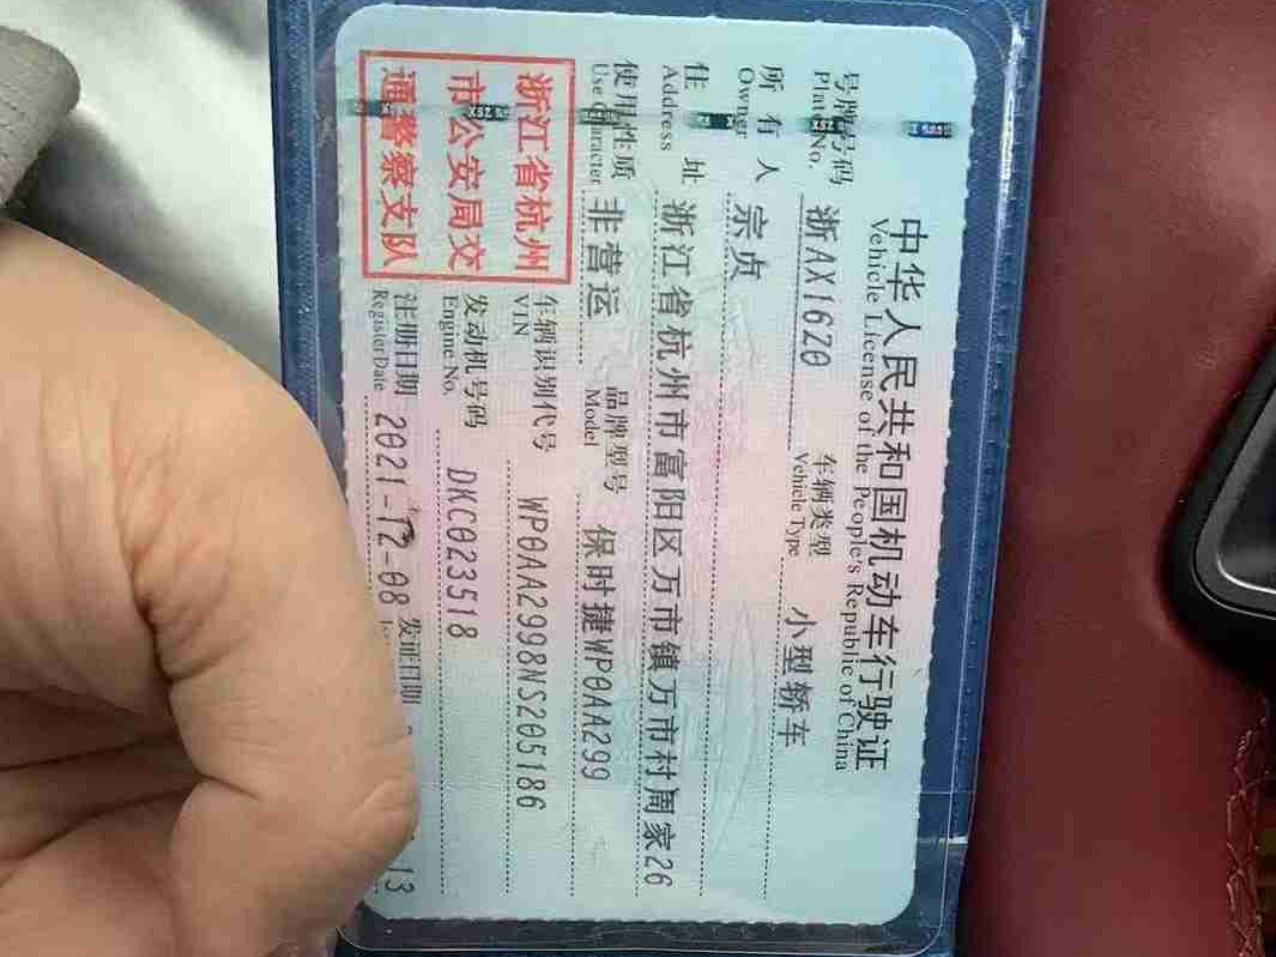 中华人民共和国机动车行驶证
Vehicle License of the People's Republic of China
号牌号码 浙AX16Z0 车辆类型 小型轿车
Plate No. Vehicle Type
所有人 宗贞
Owner
住址 浙江省杭州市富阳区万市镇万市村周家26
Address
使用性质 非营运 品牌型号 保时捷WP0AA299
Use Character Model
浙江省杭州
市公安局交
通警察支队
车辆识别代号 WP0AA2998NS205186
VIN
发动机号码 DKC023518
Engine No.
注册日期 2021-12-08 发证日期 13
Register Date